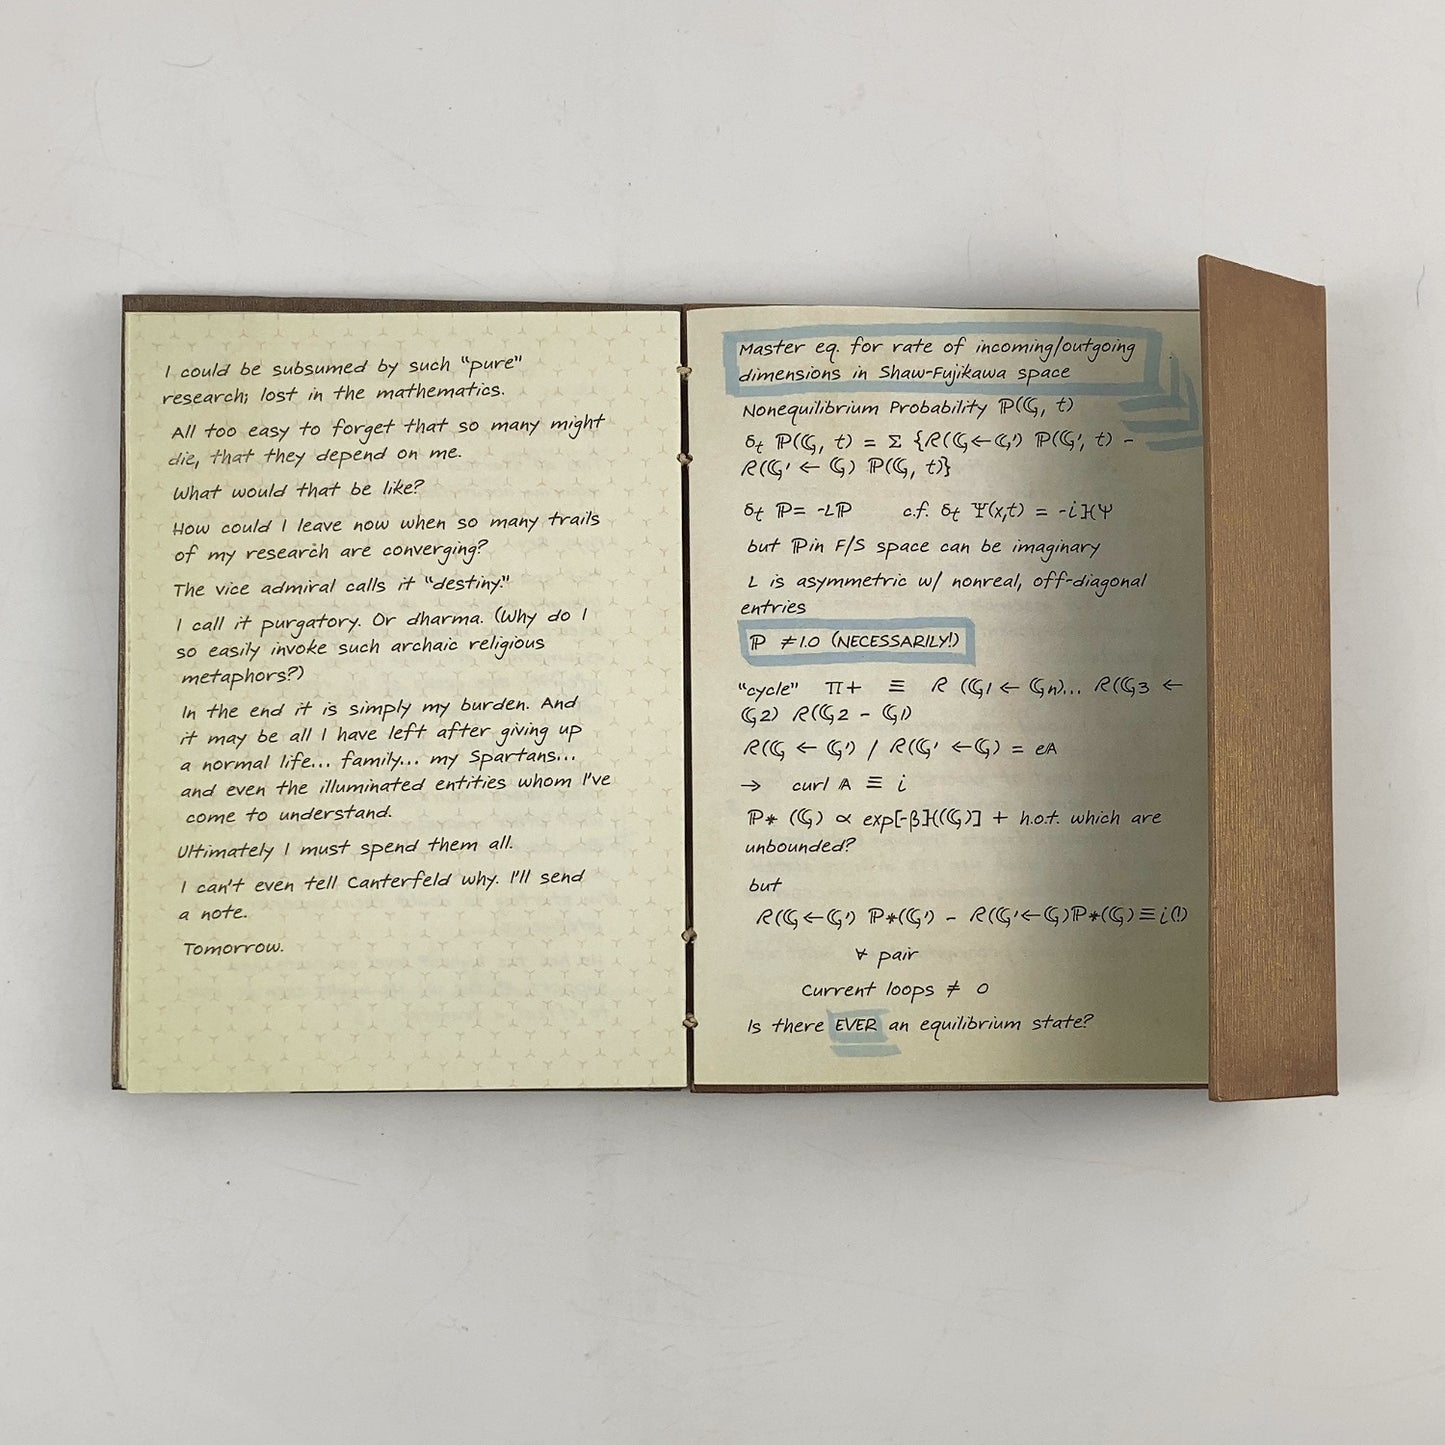 I could be subsumed by such "pure"
research; lost in the mathematics.
All too easy to forget that so many might
die, that they depend on me.
What would that be like?
How could I leave now when so many trails
of my research are converging?
The vice admiral calls it "destiny."
I call it purgatory. Or dharma. (Why do I
so easily invoke such archaic religious
metaphors?)
In the end it is simply my burden. And
it may be all I have left after giving up
a normal life... family... my Spartans...
and even the illuminated entities whom I've
come to understand.
Ultimately I must spend them all.
I can't even tell Canterfeld why. I'll send
a note.
Tomorrow.
Master eq. for rate of incoming/outgoing
dimensions in Shaw-Fujikawa space
Nonequilibrium Probability ℙ(𝔾, t)
δt ℙ(𝔾, t) = Σ {R(𝔾←𝔾') ℙ(𝔾', t) -
R(𝔾' ← 𝔾) ℙ(𝔾, t)}
δt ℙ= -Lℙ c.f. δt Ψ(x,t) = -iℍΨ
but ℙin F/S space can be imaginary
L is asymmetric w/ nonreal, off-diagonal
entries
ℙ ≠1.0 (NECESSARILY!)
"cycle" π+ ≡ R (𝔾1 ← 𝔾n)... R(𝔾3 ←
𝔾2) R(𝔾2 - 𝔾1)
R(𝔾 ← 𝔾') / R(𝔾' ←𝔾) = e𝔸
→ curl 𝔸 ≡ i
ℙ* (𝔾) ∝ exp[-βℍ(𝔾)] + h.o.t. which are
unbounded?
but
R(𝔾←𝔾') ℙ*(𝔾') - R(𝔾'←𝔾)ℙ*(𝔾)≡i(!)
∀ pair
Current loops ≠ 0
Is there EVER an equilibrium state?